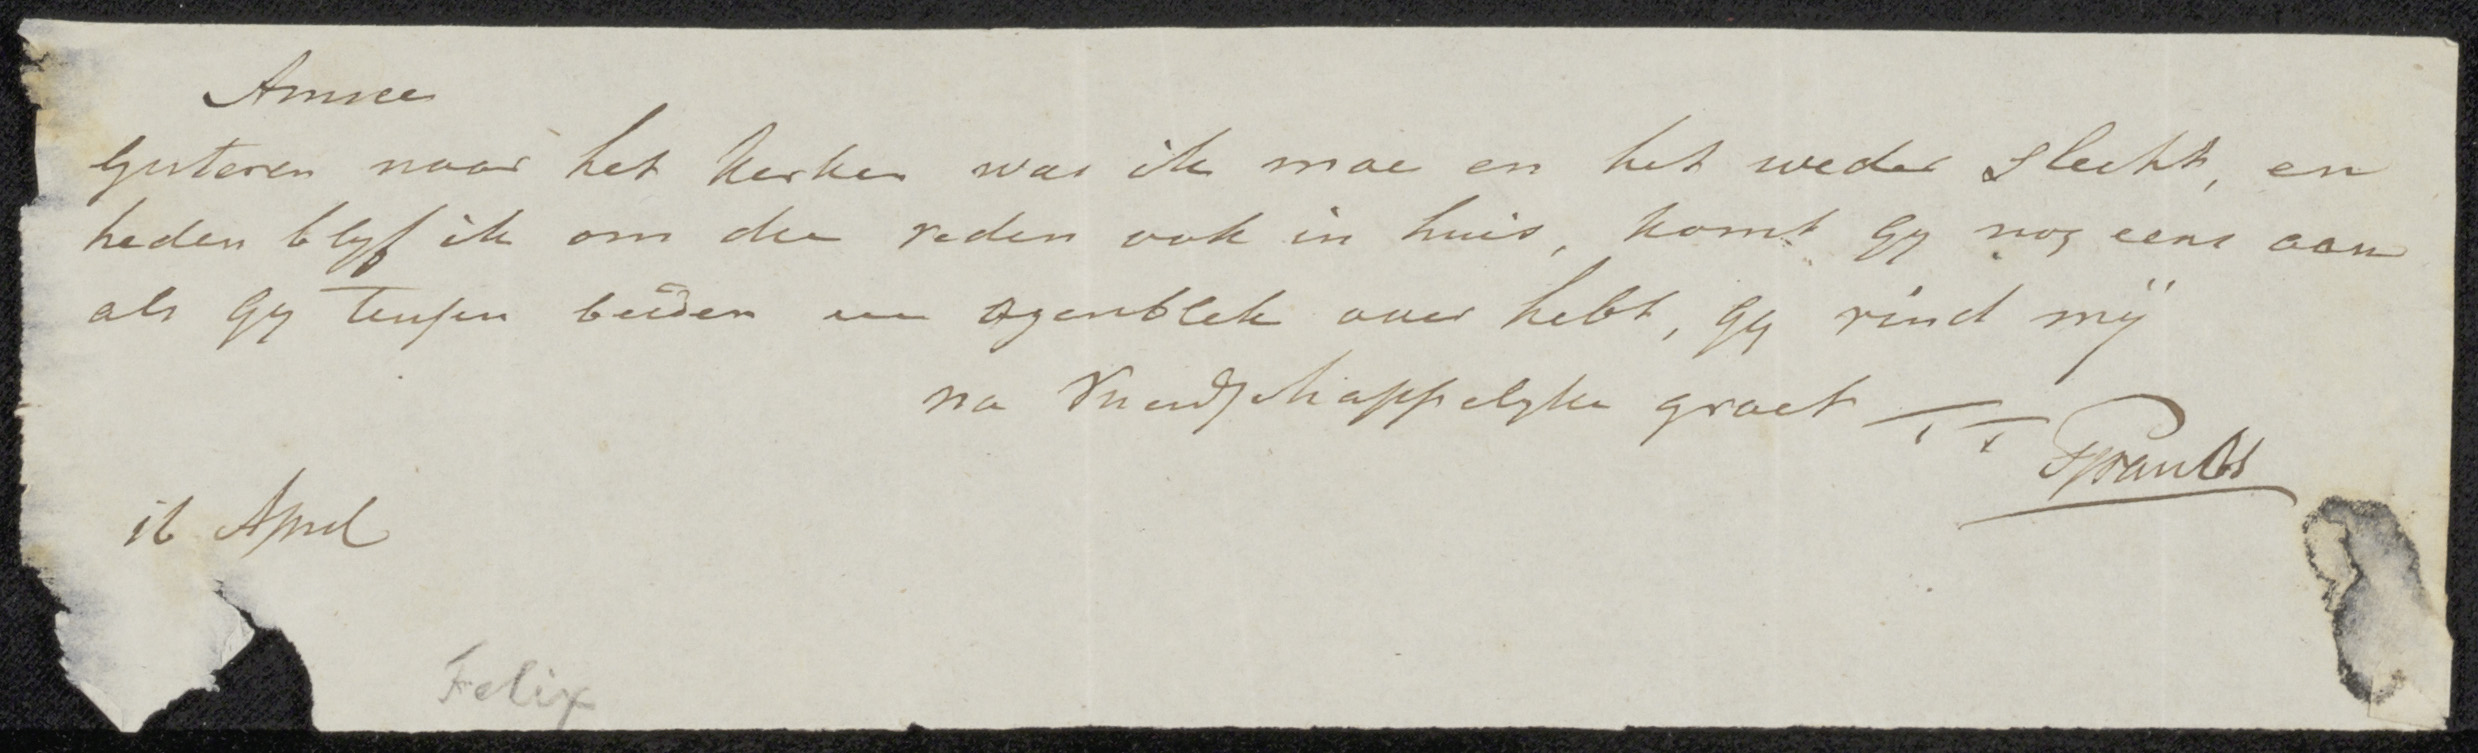 Amice
Gisteren naar het kerken was ik moe en het weder slecht, en
heden blyf ik om die reden ook in huis, komt gy nog eens aan
als gy tussen beiden een ogenblik over hebt, gy vind my
na vriendschappelyke groet TT
16 April
Felix